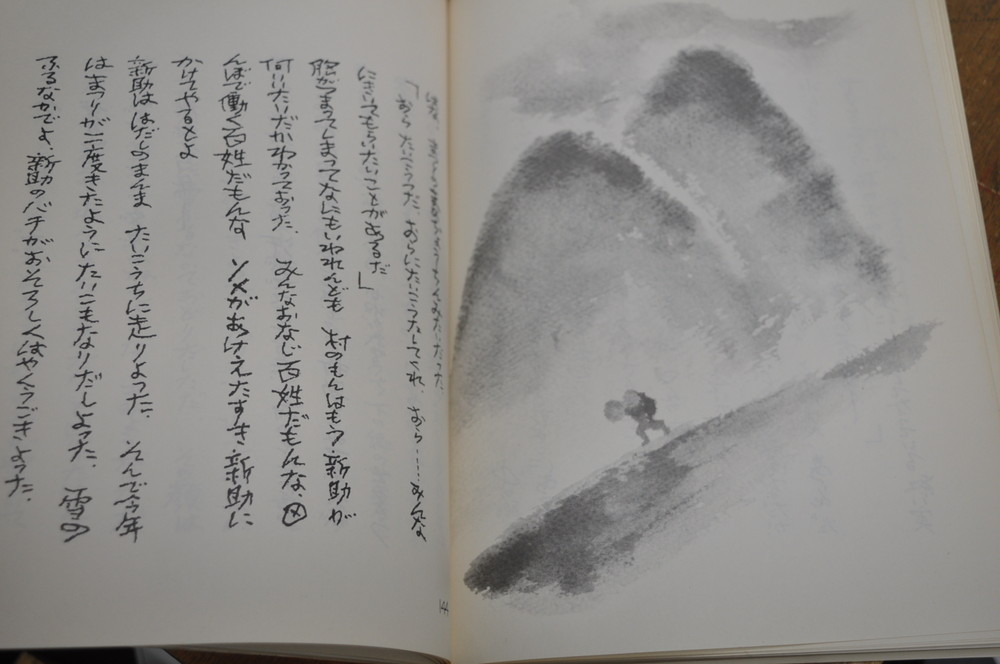 「おらたいこうつた おらにたいこうたしてくれ、おら……みんな
にきいてもらいたいことがあるだ」
胸がつまってしまってなんにもいわれんども 村のもんはもう、新助が
何いいたいだかわかっておった、みんなおなじ百姓だもんな、田
んぼで働く百姓だもんな ソメがあけえたすき、新助に
かけてやるとよ
新助ははだしのまんま たいこうちに走りよった。そんで今年
はまつりが二度きたようにたいこもなりだしよった、雪の
ふるなかでよ、新助のバチがおそろしくはやくうごきよった。